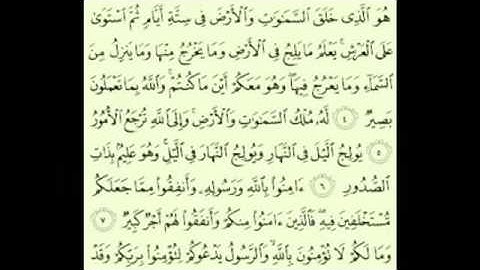 هُوَ ٱلَّذِى خَلَقَ ٱلسَّمَٰوَٰتِ وَٱلْأَرْضَ فِى سِتَّةِ أَيَّامٍ ثُمَّ ٱسْتَوَىٰ
عَلَى ٱلْعَرْشِ ۚ يَعْلَمُ مَا يَلِجُ فِى ٱلْأَرْضِ وَمَا يَخْرُجُ مِنْهَا وَمَا يَنزِلُ مِنَ
ٱلسَّمَآءِ وَمَا يَعْرُجُ فِيهَا ۖ وَهُوَ مَعَكُمْ أَيْنَ مَا كُنتُمْ ۚ وَٱللَّهُ بِمَا تَعْمَلُونَ
بَصِيرٌ ٤ لَّهُۥ مُلْكُ ٱلسَّمَٰوَٰتِ وَٱلْأَرْضِ ۚ وَإِلَى ٱللَّهِ تُرْجَعُ ٱلْأُمُورُ
٥ يُولِجُ ٱلَّيْلَ فِى ٱلنَّهَارِ وَيُولِجُ ٱلنَّهَارَ فِى ٱلَّيْلِ ۚ وَهُوَ عَلِيمٌۢ بِذَاتِ
ٱلصُّدُورِ ٦ ءَامِنُوا۟ بِٱللَّهِ وَرَسُولِهِۦ وَأَنفِقُوا۟ مِمَّا جَعَلَكُم
مُّسْتَخْلَفِينَ فِيهِ ۖ فَٱلَّذِينَ ءَامَنُوا۟ مِنكُمْ وَأَنفَقُوا۟ لَهُمْ أَجْرٌ كَبِيرٌ ٧
وَمَا لَكُمْ لَا تُؤْمِنُونَ بِٱللَّهِ ۙ وَٱلرَّسُولُ يَدْعُوكُمْ لِتُؤْمِنُوا۟ بِرَبِّكُمْ وَقَدْ